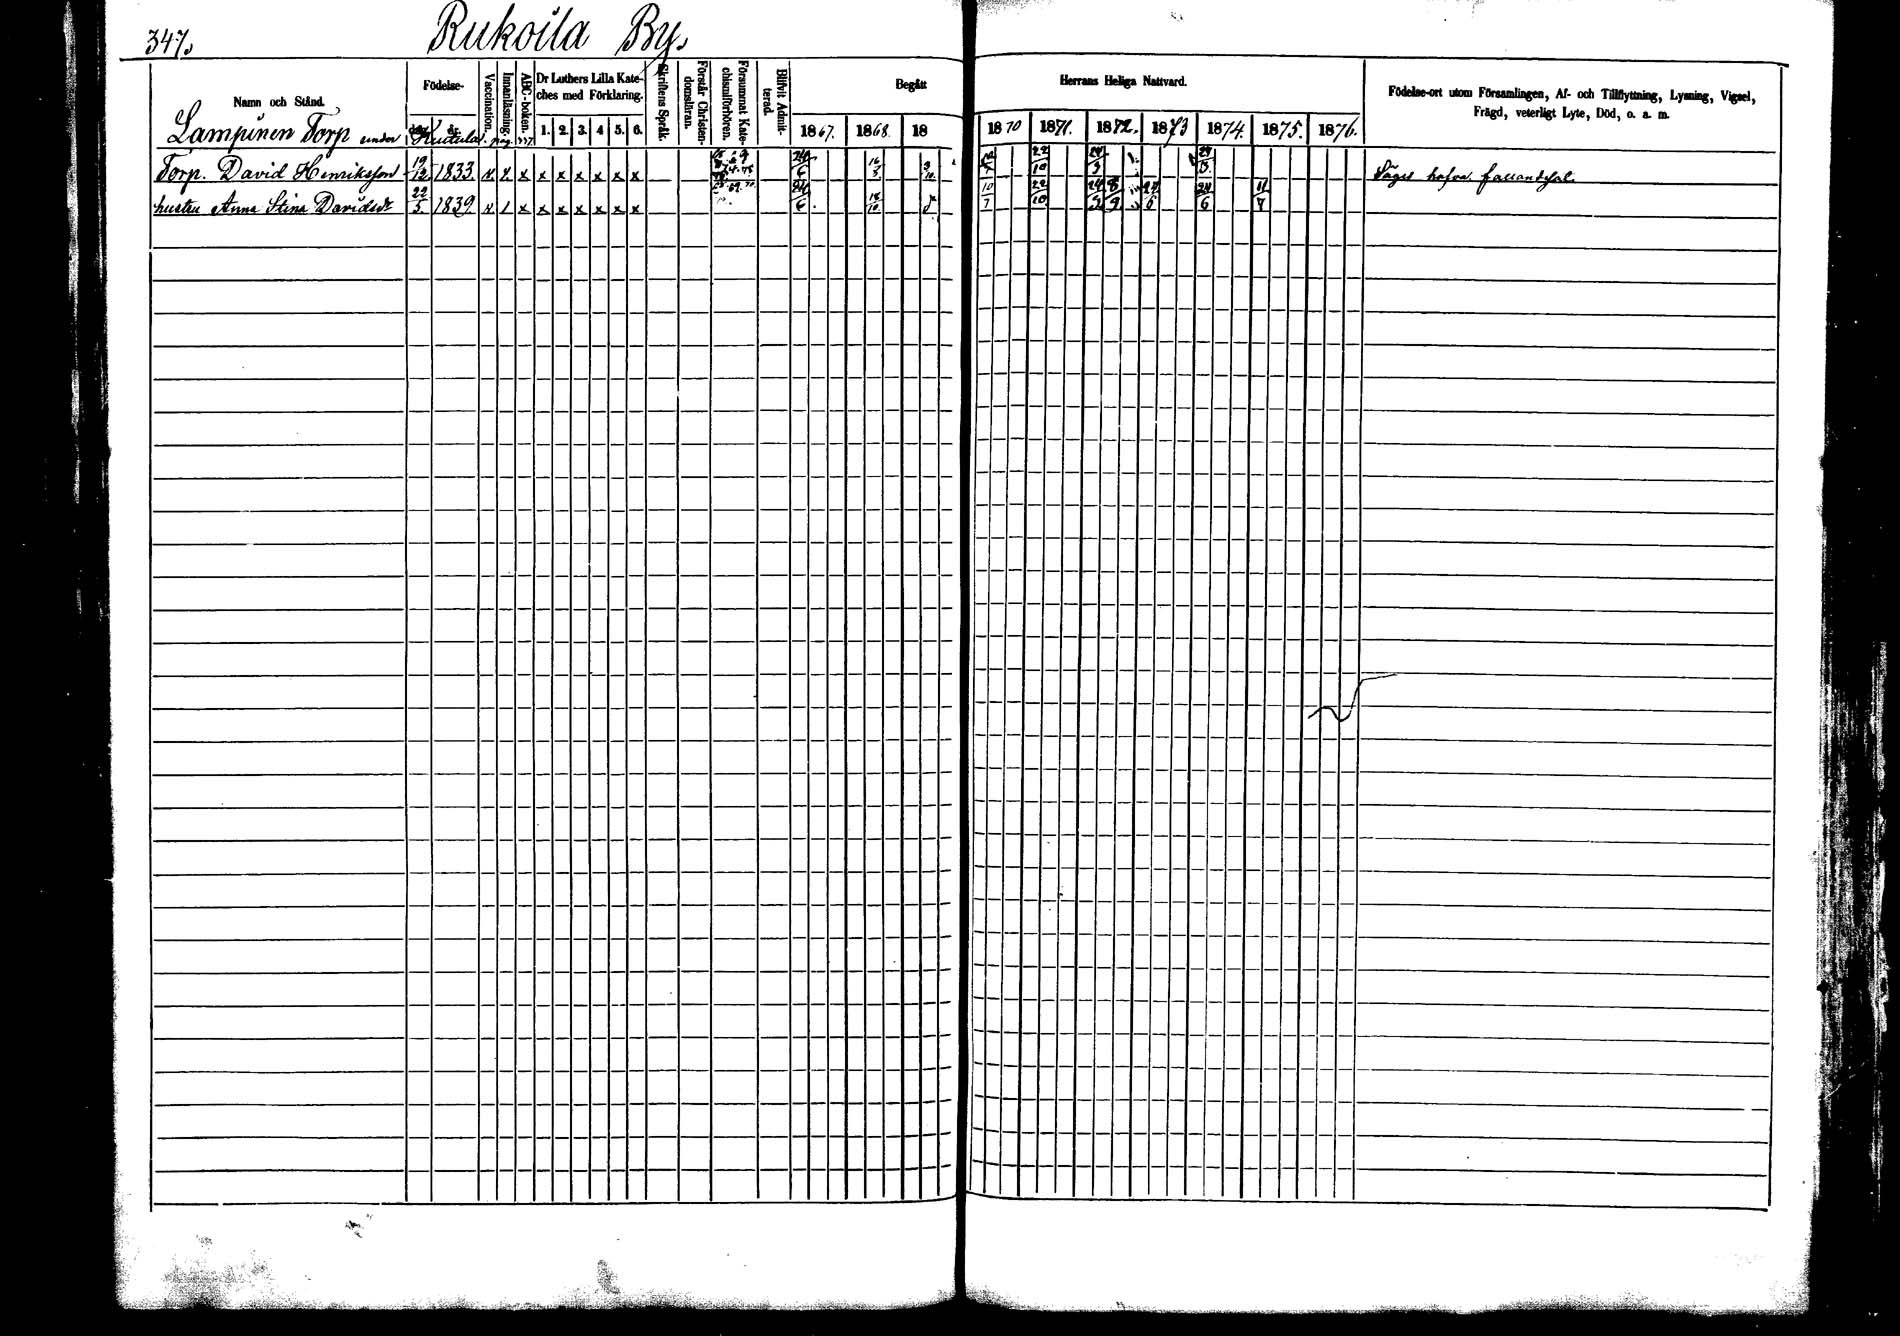 347.
Rukoila By.
Namn och Stånd.
Födelse-
dag.
år.
Vaccination.
Innanläsning.
ABC-boken.
Dr Luthers Lilla Kate-
ches med Förklaring.
1. 2. 3. 4 5. 6.
Skriftens Språk.
Förstår Christen-
domsläran.
Försummat Kate-
chismiförhören.
Blifvit Admit-
terad.
Begått
1867. 1868. 18
Herrans Heliga Nattvard.
1870 1871. 1872. 1873 1874. 1875. 1876.
Födelse-ort utom Församlingen, Af- och Tillflyttning, Lysning, Vigsel,
Frägd, veterligt Lyte, Död, o. a. m.
Lampinen Torp under Kuutula. pag.
Torp. David Henriksson 19/12 1833. x x x x x x x x 24/6 16/5 22/10 24/3 24/5 Säges hafva fallandesot.
hustru Anna Stina Davidsdr 22/5. 1839. x x x x x x x 24/6. 18/10 10/7 22/10 24/3 8/9 24/6 11/7